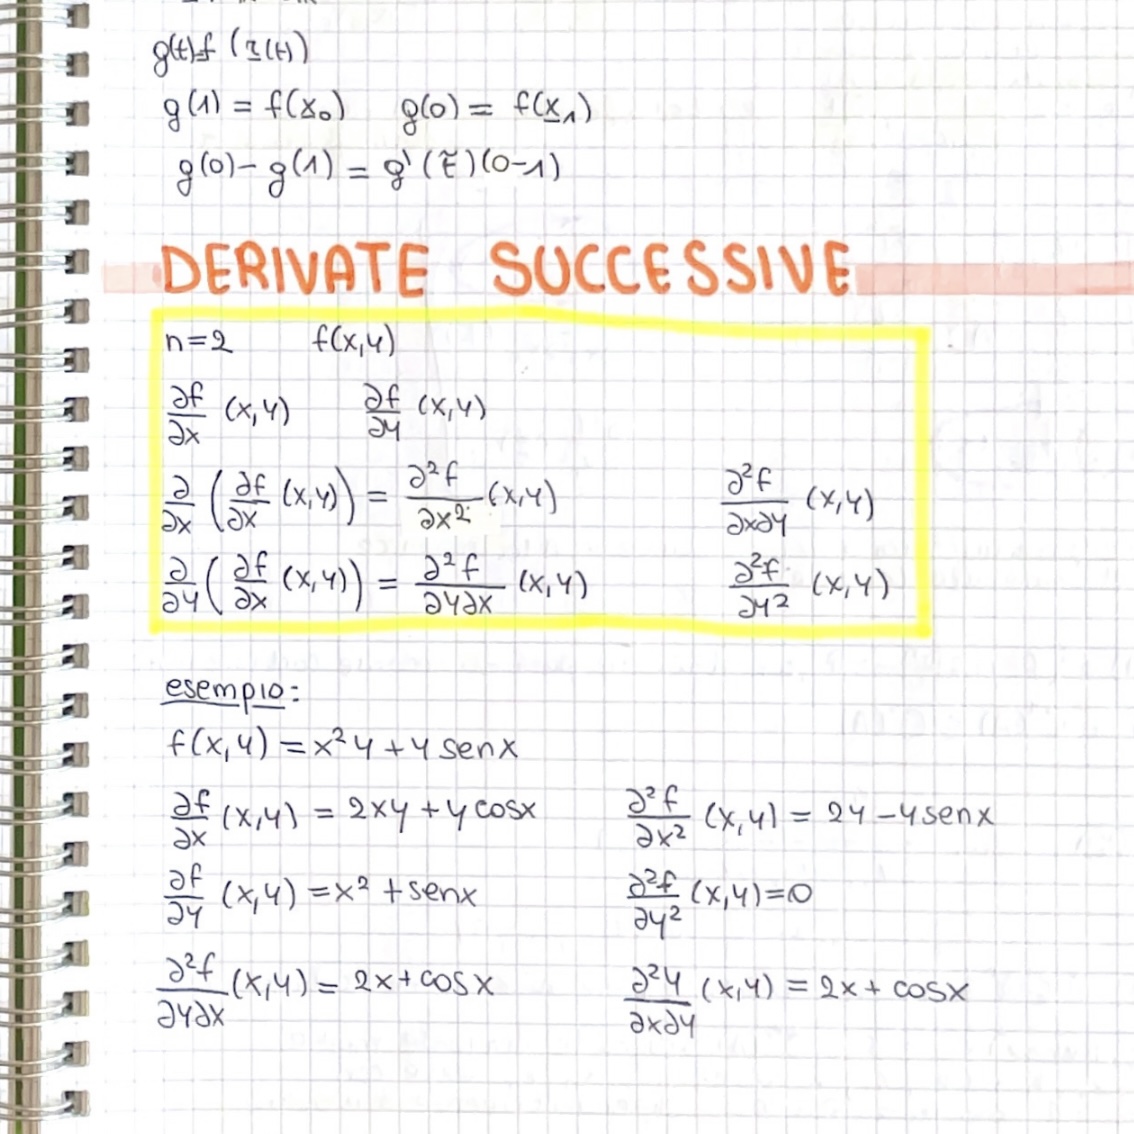 g(t)=f(r(t))
g(1) = f(x₀) g(0) = f(x₁)
g(0) - g(1) = g'(t̃)(0-1)
DERIVATE SUCCESSIVE
n=2 f(x,y)
∂f/∂x (x,y) ∂f/∂y (x,y)
∂/∂x (∂f/∂x (x,y)) = ∂²f/∂x² (x,y) ∂²f/∂x∂y (x,y)
∂/∂y (∂f/∂x (x,y)) = ∂²f/∂y∂x (x,y) ∂²f/∂y² (x,y)
esempio:
f(x,y) = x²y + y senx
∂f/∂x (x,y) = 2xy + y cosx ∂²f/∂x² (x,y) = 2y - y senx
∂f/∂y (x,y) = x² + senx ∂²f/∂y² (x,y) = 0
∂²f/∂y∂x (x,y) = 2x + cosx ∂²y/∂x∂y (x,y) = 2x + cosx